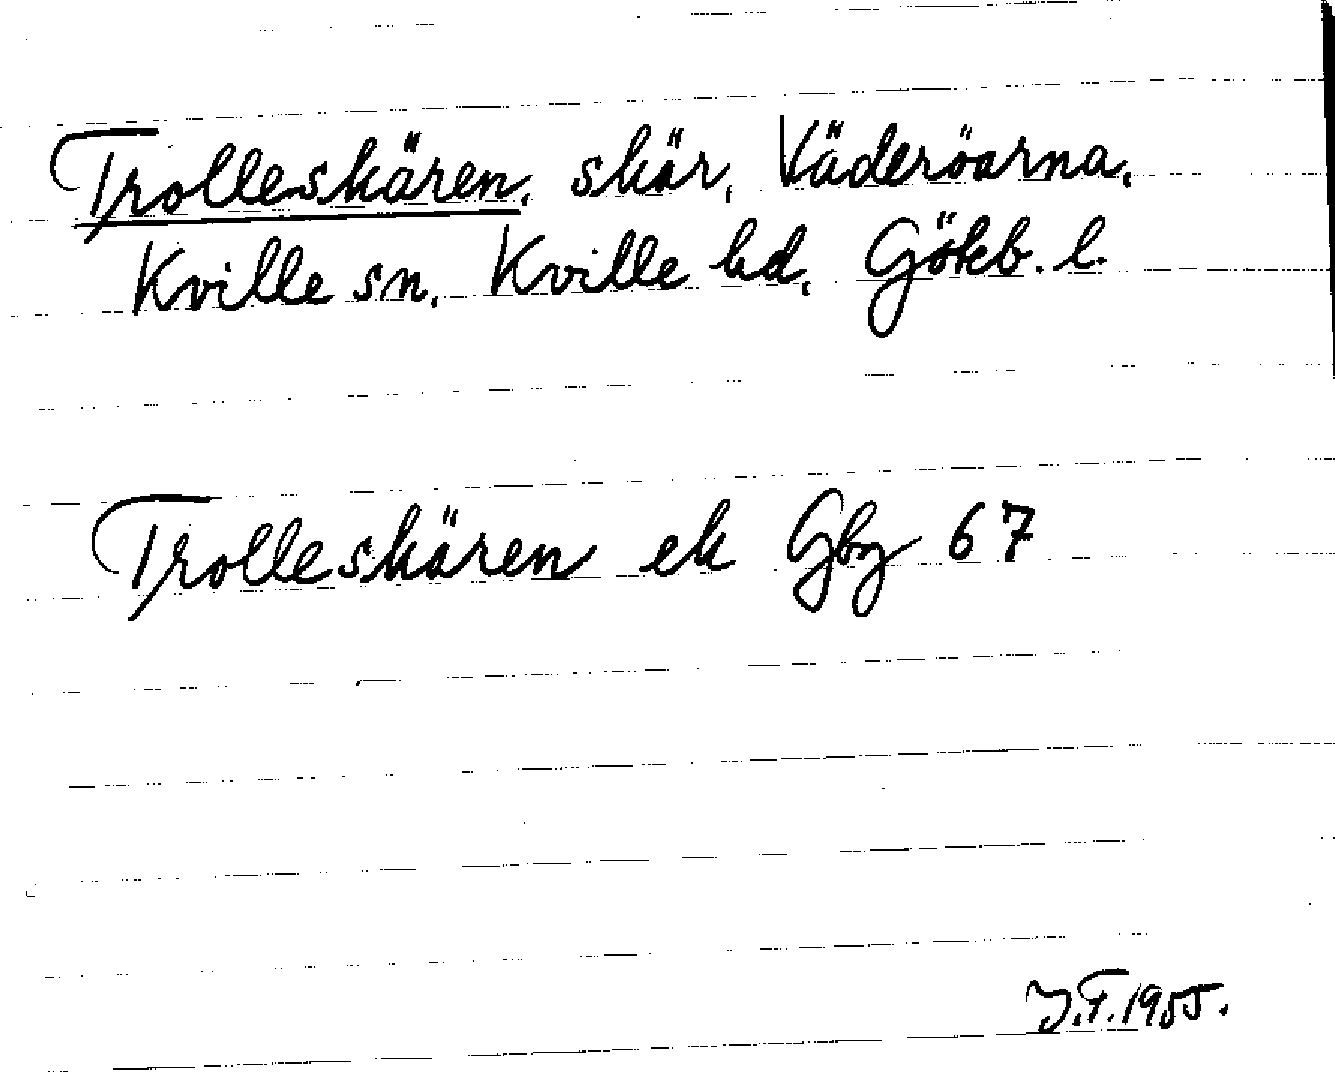 Trolleskären, skär, Väderöarna,
Kville sn, Kville hd, Göteb. l.
Trolleskären ek Gbg 67
J.T. 1955.